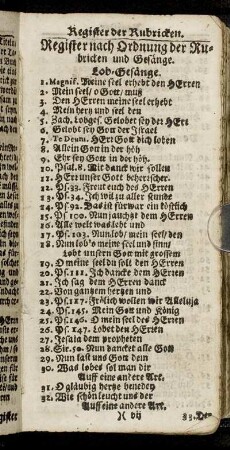 Register der Rubricken.
Register nach Ordnung der Ru-
bricken und Gesänge.
Lob-Gesänge.
1. Magnif. Meine seel erhebt den HErren
2. Mein seel/ o Gott/ muß
3. Den HErren meine seel erhebt
4. Mein hertz und seel den
5. Zach. Lobges. Gelobet sey der HErr
6. Gelobt sey Gott der Israel
7. Te Deum. HErr Gott dich loben
8. Allein Gott in der höh
9. Ehr sey Gott in der höh.
10. Psal. 8. Mit danck wir sollen
11. HErr unser Gott beherrscher.
12. Ps. 33. Freut euch des HErren
13. Ps. 34. Ich wil zu aller stunde
14. Ps. 92. Das ist fürwar ein köstlich
15. Ps. 100. Nun jauchzt dem HErren
16. Alle welt was lebt und
17. Ps. 103. Nun lob/ mein seel/ den
18. Nun lob's meine seel und sing
Lobt unsern Gott mit grossem
19. O meine seel du soll den HErren
20. Ps. 111. Ich dancke dem HErren
21. Ich sag dem HErren danck
22. Von gantzem hertzen und
23. Ps. 117. Frölich wollen wir Alleluja
24. Ps. 145. Mein Gott und König
25. Ps. 146. O mein seel des HErren
26. Ps. 147. Lobet den HErren
27. Jesaia dem propheten
28. Sir. 50. Nun dancket alle Gott
29. Nun last uns Gott dem
30. Was lobes sol man dir
Auff eine andere Art.
31. O gläubig hertze benedey
32. Wie schön leucht uns der
Auff eine andere Art.
33. Der